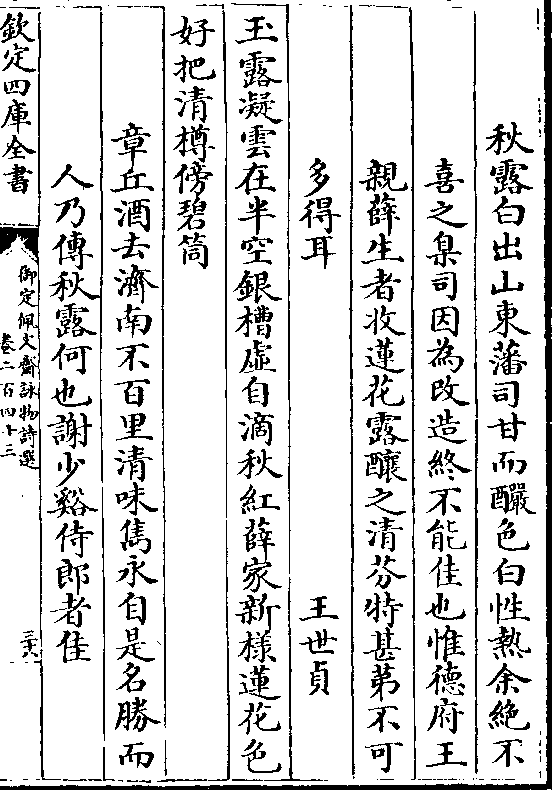 秋露白出山東藩司甘而釅色白性熱余絶不
喜之臬司因為改造終不能佳也惟德府王
親薛生者收蓮花露釀之清芬特甚苐不可
多得耳　王世貞
玉露凝雲在半空銀槽虛自滴秋紅薛家新樣蓮花色
好把清樽傍碧筒
章丘酒去濟南不百里清味雋永自是名勝而
人乃傳秋露何也謝少谿侍郎者佳
欽定四庫全書
御定佩文齋詠物詩選
卷二百四十三
三六